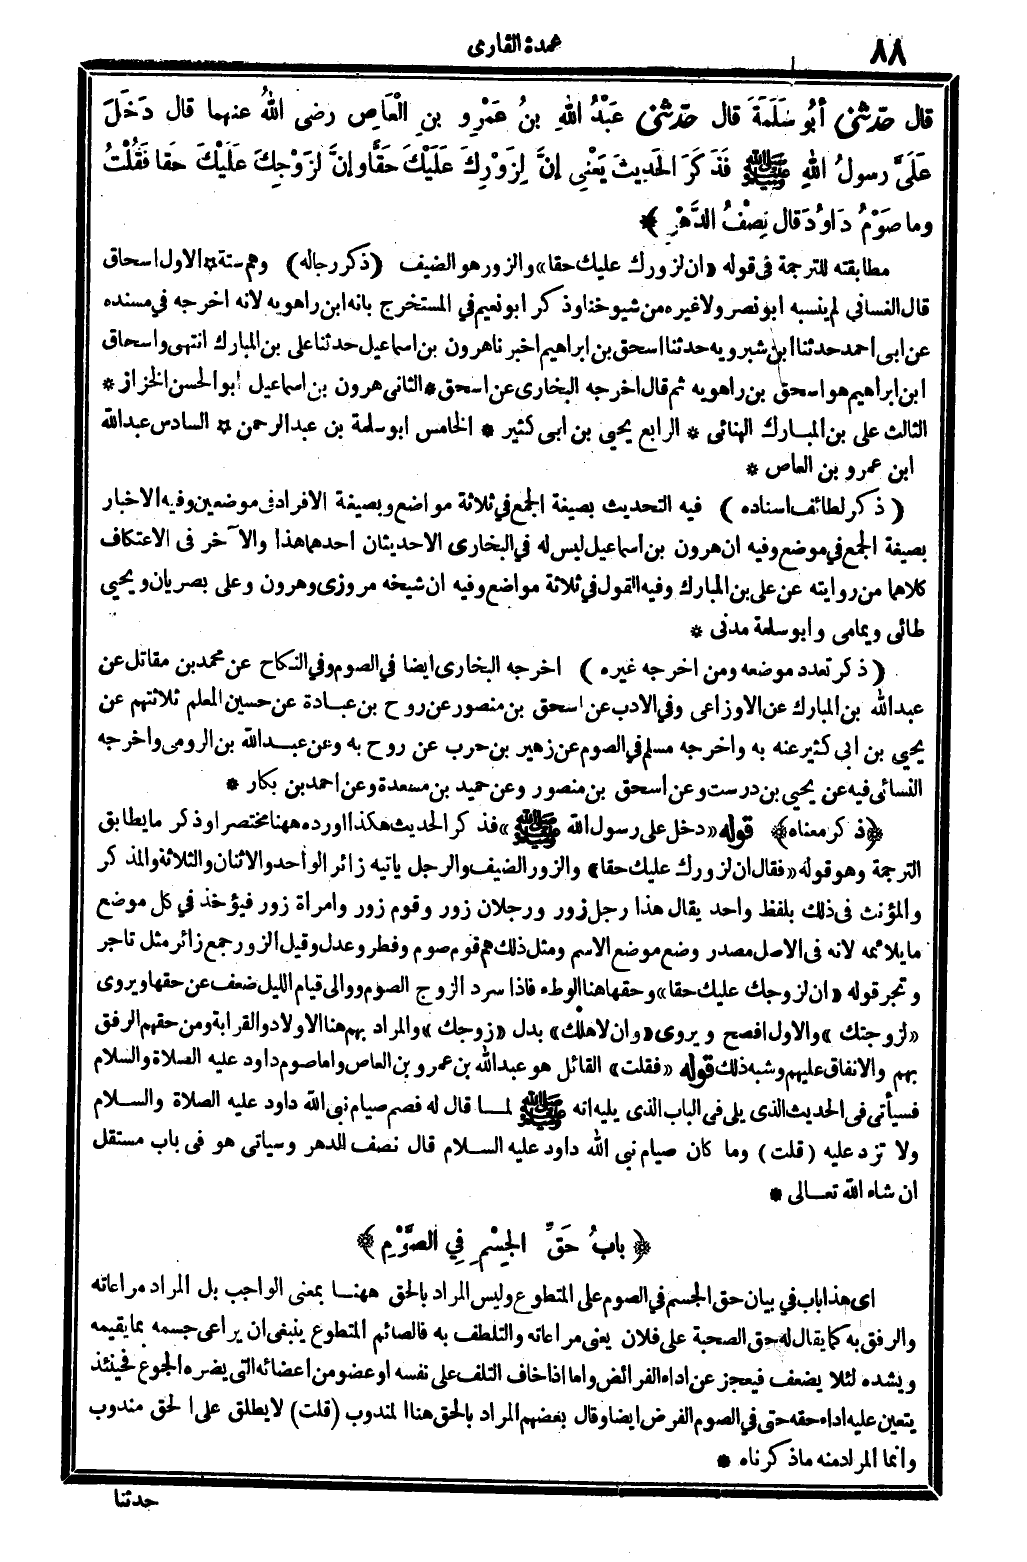 ٨٨
عمدة القارى
قال حَدَّثَنِي أبُو سَلَمَةَ قال حَدَّثَنِي عَبْدُ اللهِ بنُ عَمْرِو بنِ الْعَاصِ رضى اللهُ عنهما قال دَخَلَ
عَلَيَّ رسولُ اللهِ ﷺ فَذَكَرَ الحَدِيثَ يَعْنِي إنَّ لِزَوْرِكَ عَلَيْكَ حَقًّا وإنَّ لِزَوْجِكَ عَلَيْكَ حَقا فَقُلْتُ
وما صَوْمُ دَاوُدَ قال نِصْفُ الدَّهْرِ ﴾
مطابقته للترجمة فى قوله «ان لزورك عليك حقا» والزور هو الضيف (ذكر رجاله) وهم ستة * الاول اسحاق
قال الغسانى لم ينسبه ابو نصر ولا غيره من شيوخنا وذكر ابو نعيم في المستخرج بانه ابن راهويه لانه اخرجه في مسنده
عن ابى احمد حدثنا ابن شيرويه حدثنا اسحق بن ابراهيم اخبرنا هرون بن اسماعيل حدثنا على بن المبارك انتهى واسحاق
ابن ابراهيم هو اسحق بن راهويه ثم قال اخرجه البخارى عن اسحق * الثانى هرون بن اسماعيل ابو الحسن الخزاز *
الثالث على بن المبارك الهنائى * الرابع يحيى بن ابى كثير * الخامس ابو سلمة بن عبد الرحمن * السادس عبد الله
ابن عمرو بن العاص *
( ذكر لطائف اسناده ) فيه التحديث بصيغة الجمع في ثلاثة مواضع وبصيغة الافراد فى موضعين وفيه الاخبار
بصيغة الجمع في موضع وفيه ان هرون بن اسماعيل ليس له في البخارى الا حديثان احدهما هذا والآخر فى الاعتكاف
كلاهما من روايته عن على بن المبارك وفيه القول في ثلاثة مواضع وفيه ان شيخه مروزى وهرون وعلى بصريان ويحيى
طائى ويمامى وابو سلمة مدنى *
( ذكر تعدد موضعه ومن اخرجه غيره ) اخرجه البخارى ايضا في الصوم وفي النكاح عن محمد بن مقاتل عن
عبد الله بن المبارك عن الاوزاعى وفي الادب عن اسحق بن منصور عن روح بن عبادة عن حسين المعلم ثلاثتهم عن
يحيى بن ابى كثير عنه به واخرجه مسلم في الصوم عن زهير بن حرب عن روح به وعن عبد الله بن الرومى واخرجه
النسائى فيه عن يحيى بن درست وعن اسحق بن منصور وعن حميد بن مسعدة وعن احمد بن بكار *
﴿ذكر معناه﴾ قوله «دخل على رسول الله ﷺ» فذكر الحديث هكذا اورده ههنا مختصرا وذكر ما يطابق
الترجمة وهو قوله «فقال ان لزورك عليك حقا» والزور الضيف والرجل ياتيه زائر الواحد والاثنان والثلاثة والمذكر
والمؤنث فى ذلك بلفظ واحد يقال هذا رجل زور ورجلان زور وقوم زور وامراة زور فيؤخذ في كل موضع
ما يلائمه لانه فى الاصل مصدر وضع موضع الاسم ومثل ذلك هم قوم صوم وفطر وعدل وقيل الزور جمع زائر مثل تاجر
وتجر قوله «ان لزوجك عليك حقا» وحقها هنا الوطء فاذا سرد الزوج الصوم ووالى قيام الليل ضعف عن حقها ويروى
«لزوجتك» والاول افصح ويروى «وان لاهلك» بدل «زوجك» والمراد بهم هنا الاولاد والقرابة ومن حقهم الرفق
بهم والانفاق عليهم وشبه ذلك قوله «فقلت» القائل هو عبد الله بن عمرو بن العاص واما صوم داود عليه الصلاة والسلام
فسيأتى فى الحديث الذى يلى فى الباب الذى يليه انه ﷺ لما قال له فصم صيام نبى الله داود عليه الصلاة والسلام
ولا تزد عليه (قلت) وما كان صيام نبى الله داود عليه السلام قال نصف الدهر وسياتى هو فى باب مستقل
ان شاء الله تعالى *
﴿ بابُ حَقِّ الجِسْمِ فِي الصَّوْمِ ﴾
اى هذا باب في بيان حق الجسم في الصوم على المتطوع وليس المراد بالحق ههنا بمعنى الواجب بل المراد مراعاته
والرفق به كما يقال له حق الصحبة على فلان يعنى مراعاته والتلطف به فالصائم المتطوع ينبغى ان يراعى جسمه بما يقيمه
ويشده لئلا يضعف فيعجز عن اداء الفرائض واما اذا خاف التلف على نفسه او عضو من اعضائه التى يضره الجوع فحينئذ
يتعين عليه اداء حقه حتى في الصوم الفرض ايضا وقال بعضهم المراد بالحق هنا المندوب (قلت) لا يطلق على الحق مندوب
وانما المراد منه ما ذكرناه *
حدثنا